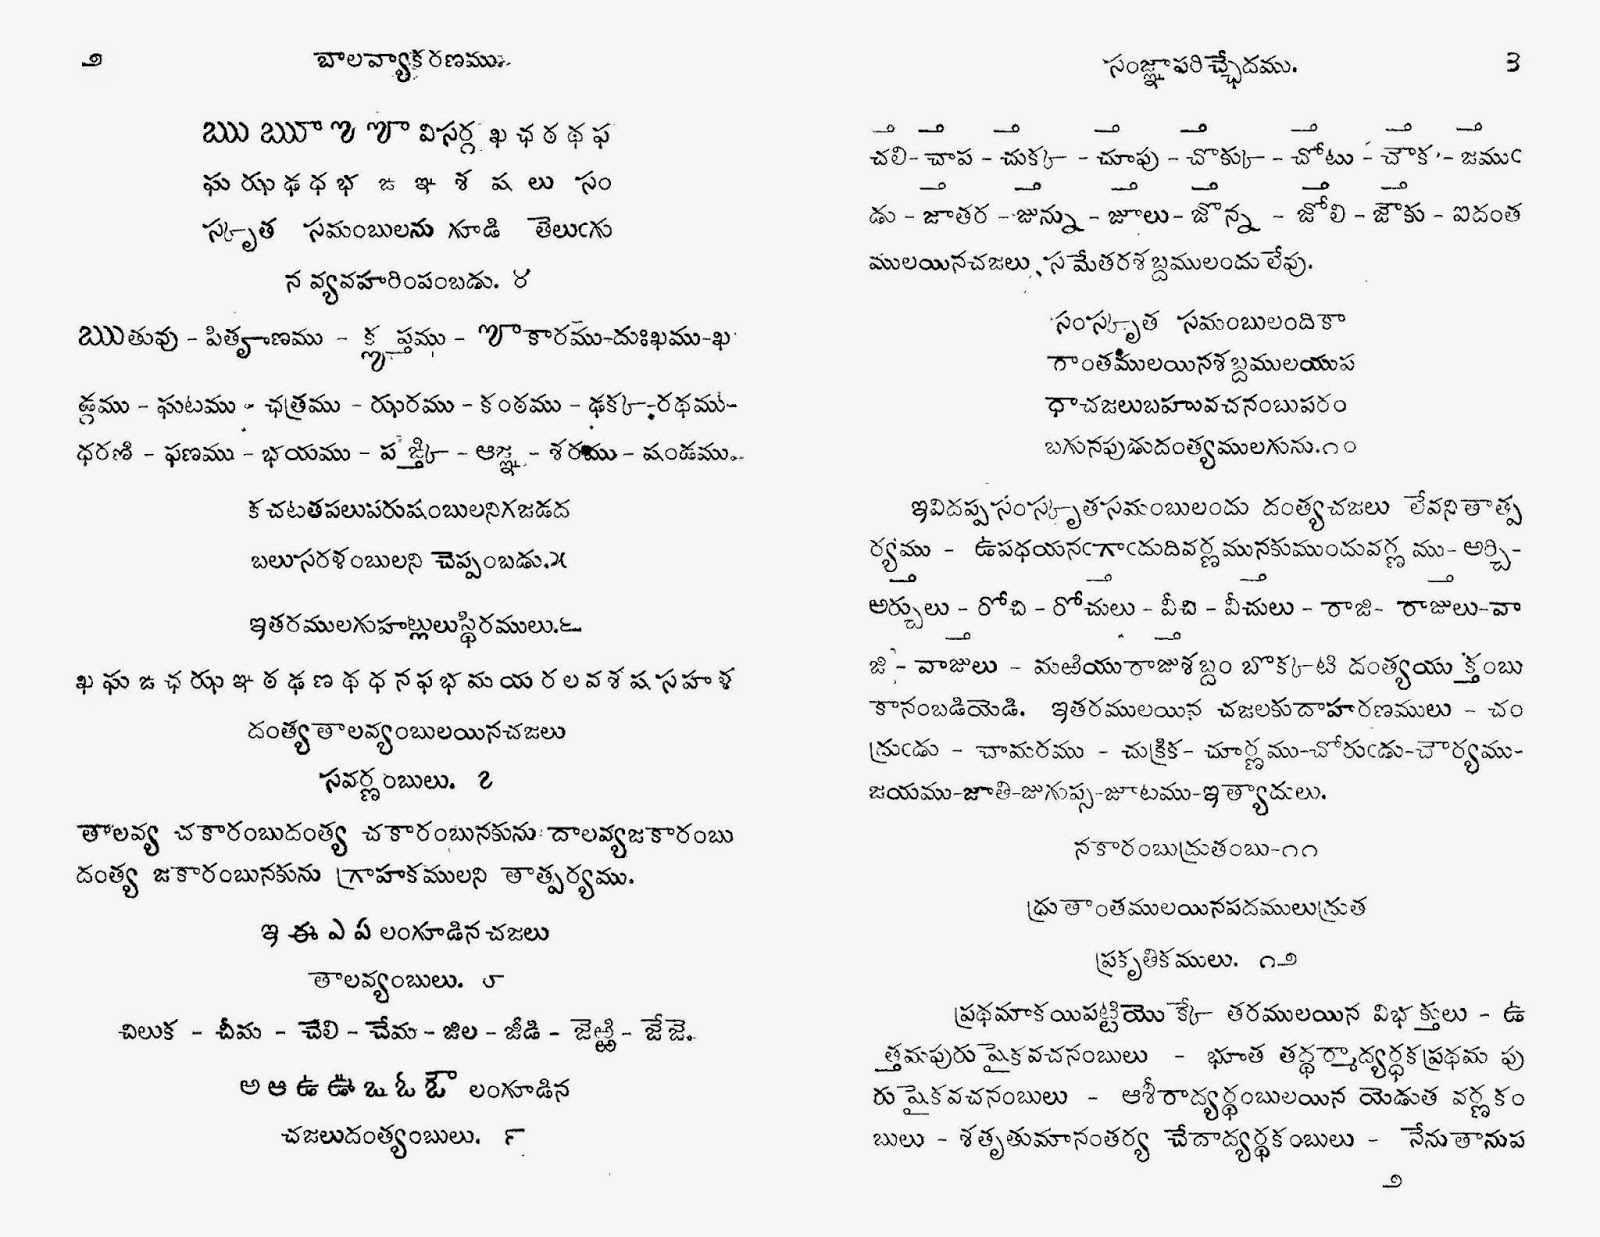 ౨ బాలవ్యాకరణము.
ఋ ౠ ఌ ౡ విసర్గ ఖ ఛ ఠ థ ఫ
ఘ ఝ ఢ ధ భ ఙ ఞ శ ష లు సం
స్కృత సమంబులను గూడి తెలుఁగు
న వ్యవహరింపంబడు. ౪
ఋతువు - పితౄణము - కౢప్తము - ౡకారము-దుఃఖము-ఖ
డ్గము - ఘటము - ఛత్రము - ఝరము - కంఠము - ఢక్క-రథము-
ధరణి - ఫణము - భయము - పఙ్క్తి - ఆజ్ఞ - శరము - షండము.
కచటతపలుపరుషంబులనిగజడద
బలుసరళంబులని చెప్పంబడు.౫
ఇతరములగుహల్లులుస్థిరములు.౬
ఖ ఘ ఙ ఛ ఝ ఞ ఠ ఢ ణ థ ధ న ఫ భ మ య ర ల వ శ ష స హ ళ
దంత్యతాలవ్యంబులయినచజలు
సవర్ణంబులు. ౭
తాలవ్య చకారంబుదంత్య చకారంబునకును దాలవ్యజకారంబు
దంత్య జకారంబునకును గ్రాహకములని తాత్పర్యము.
ఇ ఈ ఎ ఏ లంగూడిన చజలు
తాలవ్యంబులు. ౮
చిలుక - చీమ - చెలి - చేమ - జిల - జీడి - జెఱ్ఱి - జేజె.
అ ఆ ఉ ఊ ఒ ఓ ఔ లంగూడిన
చజలుదంత్యంబులు. ౯
సంజ్ఞాపరిచ్ఛేదము. ౩
చలి- చాప - చుక్క - చూపు - చొక్కు - చోటు - చౌక - జముఁ
డు - జాతర - జున్ను - జూలు- జొన్న - జోలి - జౌకు - ఐదంత
ములయినచజలు సమేతరశబ్దములందు లేవు.
సంస్కృత సమంబులందికా
రాంతములయినశబ్దములయుప
ధాచజలుబహువచనంబుపరం
బగునపుడుదంత్యములగును.౧౦
ఇవిదప్పసంస్కృతసమంబులందు దంత్యచజలు లేవనితాత్ప
ర్యము - ఉపధయనఁగాఁదుదివర్ణమునకుముందువర్ణ ము- అర్చి-
అర్చులు - రోచి - రోచులు - వీచి - వీచులు - రాజి- రాజులు-వా
జి - వాజులు - మఱియురాజుశబ్దం బొక్కటి దంత్యయు క్తంబు
కానంబడియెడి. ఇతరములయిన చజలకుదాహరణములు - చం
ద్రుఁడు - చామరము - చుక్రిక- చూర్ణము-చోరుఁడు-చౌర్యము-
జయము-జాతి-జుగుప్స-జూటము-ఇత్యాదులు.
నకారంబుద్రుతంబు-౧౧
ద్రుతాంతములయినపదములుద్రుత
ప్రకృతికములు. ౧౨
ప్రథమాకయిపట్టియొక్కే తరములయిన విభక్తులు - ఉ
త్తమపురుషైకవచనంబులు - భూత తద్ధర్మాద్యర్థకప్రథమ పు
రుషైకవచనంబులు - ఆశీరాద్యర్థంబులయిన యెడుత వర్ణకం
బులు - శతృతుమానంతర్య చేదాద్యర్థకంబులు - నేనుతానుప
౨